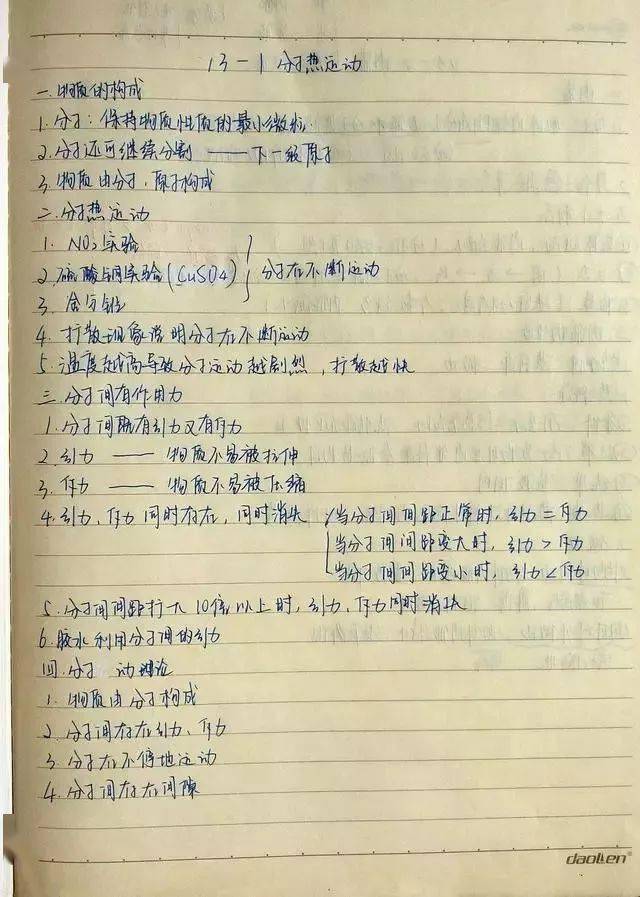 13-1 分子热运动
一.物质的构成
1.分子:保持物质性质的最小微粒.
2.分子还可继续分割 —— 下一级原子
3.物质由分子.原子构成
二.分子热运动
1. NO₂实验
2.硫酸铜实验(CuSO4) } 分子在不断运动
3.金与铅
4.扩散现象说明分子在不断运动
5.温度越高导致分子运动越剧烈,扩散越快
三.分子间有作用力
1.分子间既有引力又有斥力
2.引力 —— 物质不易被拉伸
3.斥力 —— 物质不易被压缩
4.引力,斥力同时存在,同时消失 { 当分子间间距正常时,引力=斥力
当分子间间距变大时,引力>斥力
当分子间间距变小时,引力<斥力
5.分子间间距扩大10倍以上时,引力,斥力同时消失
6.胶水利用分子间的引力
四.分子 动理论
1.物质由分子构成
2.分子间存在引力、斥力
3.分子在不停地运动
4.分子间存在间隙
daolien